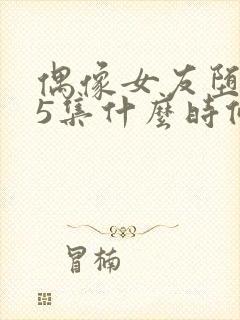 偶像女友堕
5集什麼時
冒楠